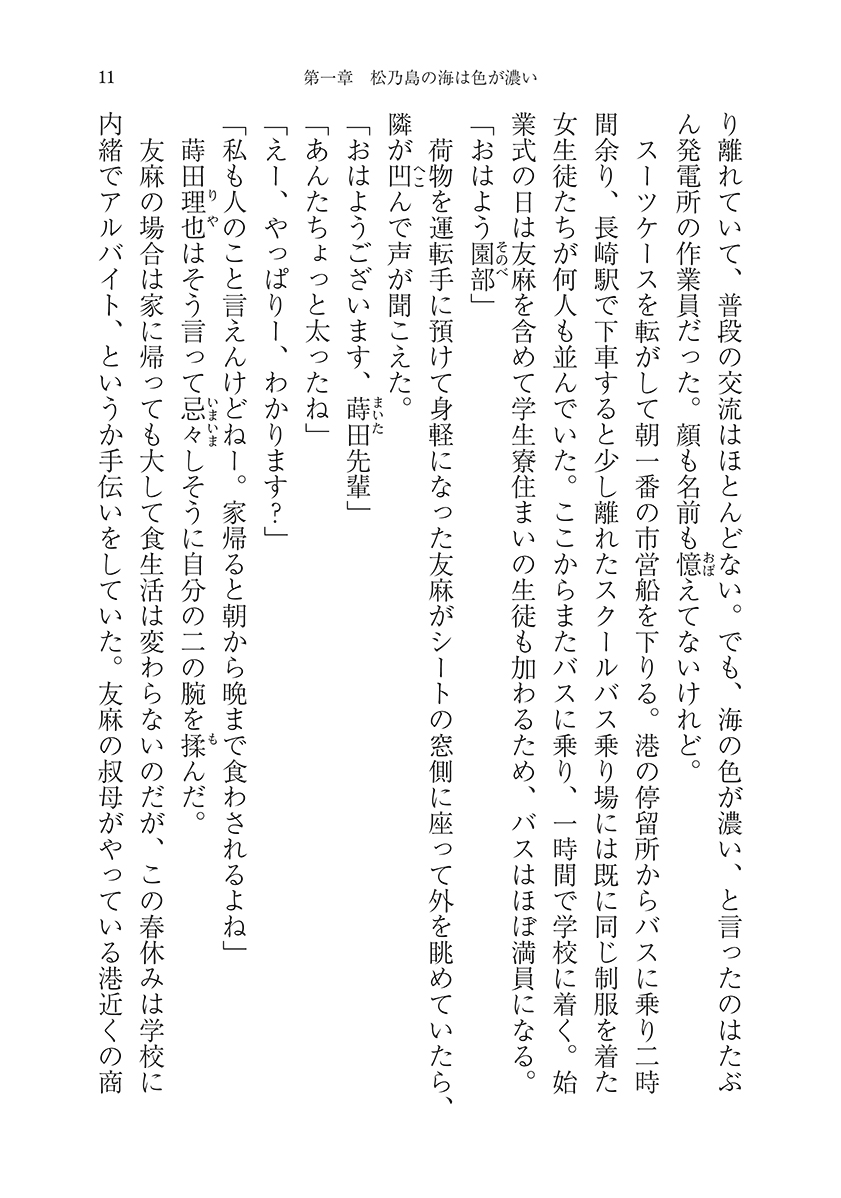 11
第一章　松乃島の海は色が濃い
り離れていて、普段の交流はほとんどない。でも、海の色が濃い、と言ったのはたぶ
ん発電所の作業員だった。顔も名前も憶えてないけれど。
おぼ
　スーツケースを転がして朝一番の市営船を下りる。港の停留所からバスに乗り二時
間余り、長崎駅で下車すると少し離れたスクールバス乗り場には既に同じ制服を着た
女生徒たちが何人も並んでいた。ここからまたバスに乗り、一時間で学校に着く。始
業式の日は友麻を含めて学生寮住まいの生徒も加わるため、バスはほぼ満員になる。
「おはよう園部」
そのべ
　荷物を運転手に預けて身軽になった友麻がシートの窓側に座って外を眺めていたら、
隣が凹んで声が聞こえた。
へこ
「おはようございます、蒔田先輩」
まいた
「あんたちょっと太ったね」
「えー、やっぱりー、わかります？」
「私も人のこと言えんけどねー。家帰ると朝から晩まで食わされるよね」
　蒔田理也はそう言って忌々しそうに自分の二の腕を揉んだ。
りや
いまいま
も
　友麻の場合は家に帰っても大して食生活は変わらないのだが、この春休みは学校に
内緒でアルバイト、というか手伝いをしていた。友麻の叔母がやっている港近くの商